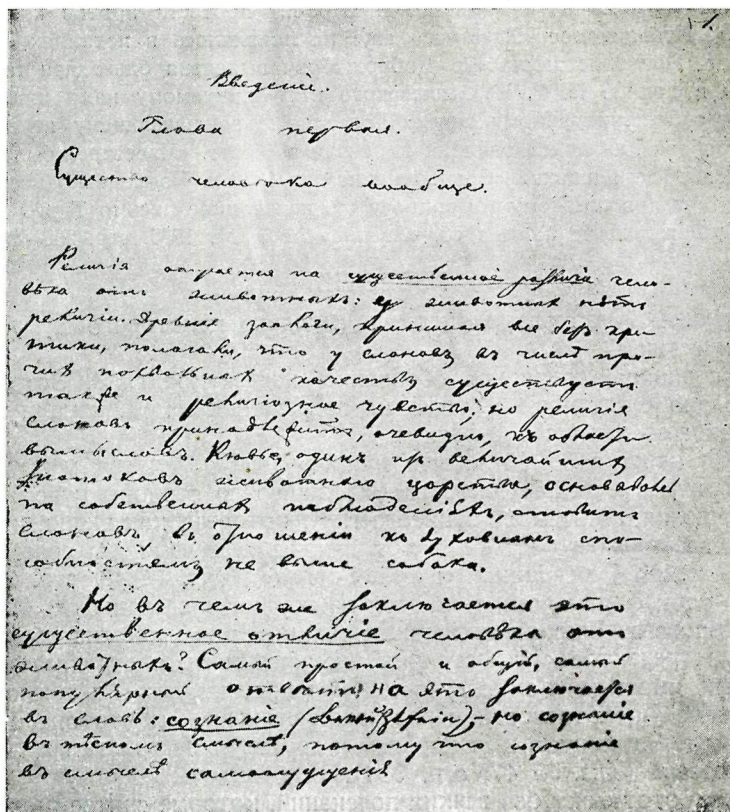 1.
Введеніе.
Глава первая.
Существо человѣка вообще.
Религія опирается на существенное различіе чело-
вѣка отъ животныхъ: у животныхъ нѣтъ
религіи. Древніе зоологи, принимая все безъ кри-
тики, полагали, что у слоновъ въ числѣ про-
чихъ похвальныхъ качествъ существуетъ
также и религіозное чувство; но религія
слоновъ принадлежитъ, очевидно, къ области
вымысловъ. Кювье, одинъ изъ величайшихъ
знатоковъ животнаго царства, основываясь
на собственныхъ наблюденіяхъ, ставитъ
слоновъ, въ отношеніи къ духовнымъ спо-
собностямъ, не выше собаки.
Но въ чемъ же заключается это
существенное отличіе человѣка отъ
животныхъ? Самый простой и общій, самый
популярный отвѣтъ на это заключается
въ словѣ: сознаніе (Bewußtsein),– но сознаніе
въ тѣсномъ смыслѣ, потому что сознаніе
въ смыслѣ самоощущенія